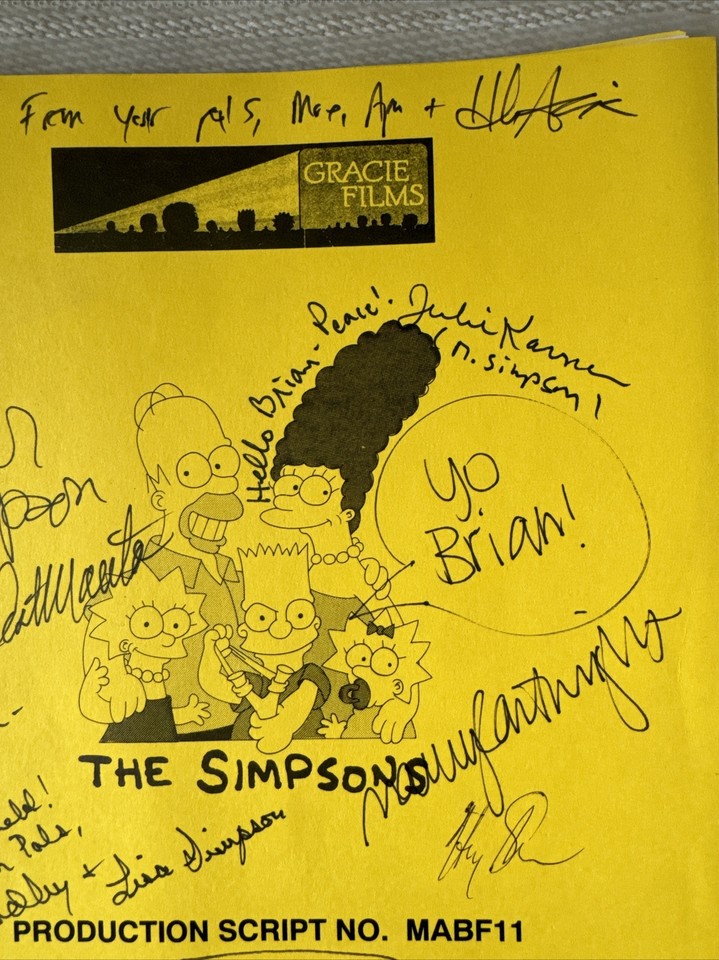 From your pals, Moe, Apu + Hank Azaria
GRACIE
FILMS
Hello Brian - Peace! Julie Kavner
(M. Simpson)
Yo
Brian!
Nancy Cartwright
THE SIMPSONS
Pals,
+ Lisa Simpson
Harry Shearer
PRODUCTION SCRIPT NO. MABF11